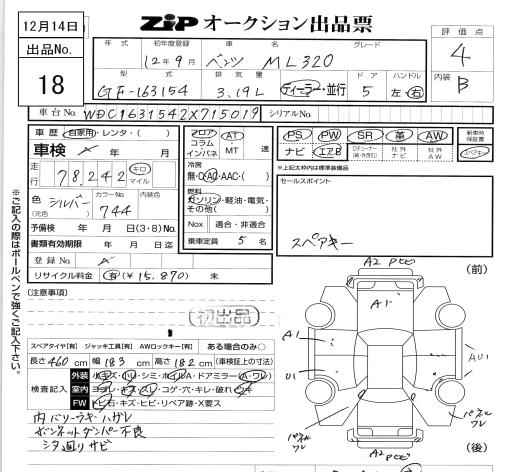 12月14日
ZIP オークション出品票
出品No.
18
年式 初年度登録 車名 グレード
12年9月 ベンツ ML320
評価点
4
型式 排気量 ドア ハンドル
GF-163154 3.19L ディーラー・並行 5 左・右
内装
B
車台No. WDC1631542X715019 シリアルNo.
車歴 自家用・レンタ・( )
車検 年 月
走行 78,242 キロ マイル
色 (元色) シルバー カラーNo. 744 内装色
予備検 年 月 日(3・8)No.
書類有効期限 年 月 日迄
登録No.
リサイクル料金 有 (¥15,870) 未
フロア コラム インパネ AT・MT 速
冷房
無・C・AC・AAC・( )
燃料
ガソリン・軽油・電気・その他( )
Nox 適合・非適合
乗車定員 5 名
PS PW SR 革 AW
ナビ エアB Dチューナー 社外ナビ 社外AW
新車時保証書
スペアキー
※上記太枠内は標準装備品
セールスポイント
スペアキー
※ご記入の際はボールペンで強くご記入下さい。
[注意事項]
初出品
スペアタイヤ[有] ジャッキ工具[有] AWロックキー[有] ある場合のみ○
長さ 460 cm 幅 183 cm 高さ 182 cm (車検証上の寸法)
検査記入
外装 小キズ・小・シミ・ホイルA・ドアミラー(A・ワレ)
室内 ヨゴレ・キズ・スレ・コゲ・穴・キレ・破れ・ウキ
FW トビ石・キズ・ヒビ・リペア跡・X要ス
内バリーウキ・ハガレ
ボンネットダンパー不良
シタ廻りサビ
(前)
A2
A1
A1
U1
A2
(後)